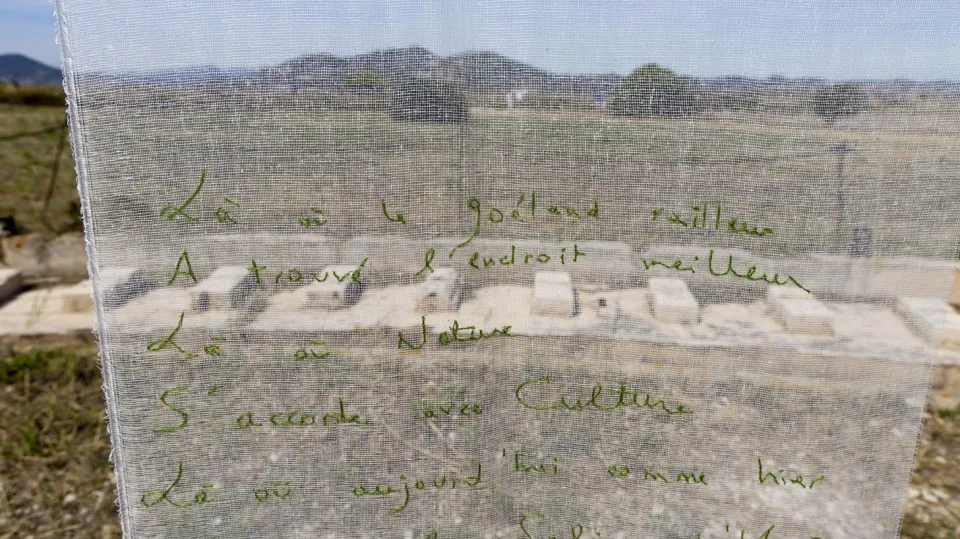 Là où le goéland railleur
A trouvé l'endroit meilleur
Là où Nature
S'accorde avec Culture
Là où aujourd'hui comme hier